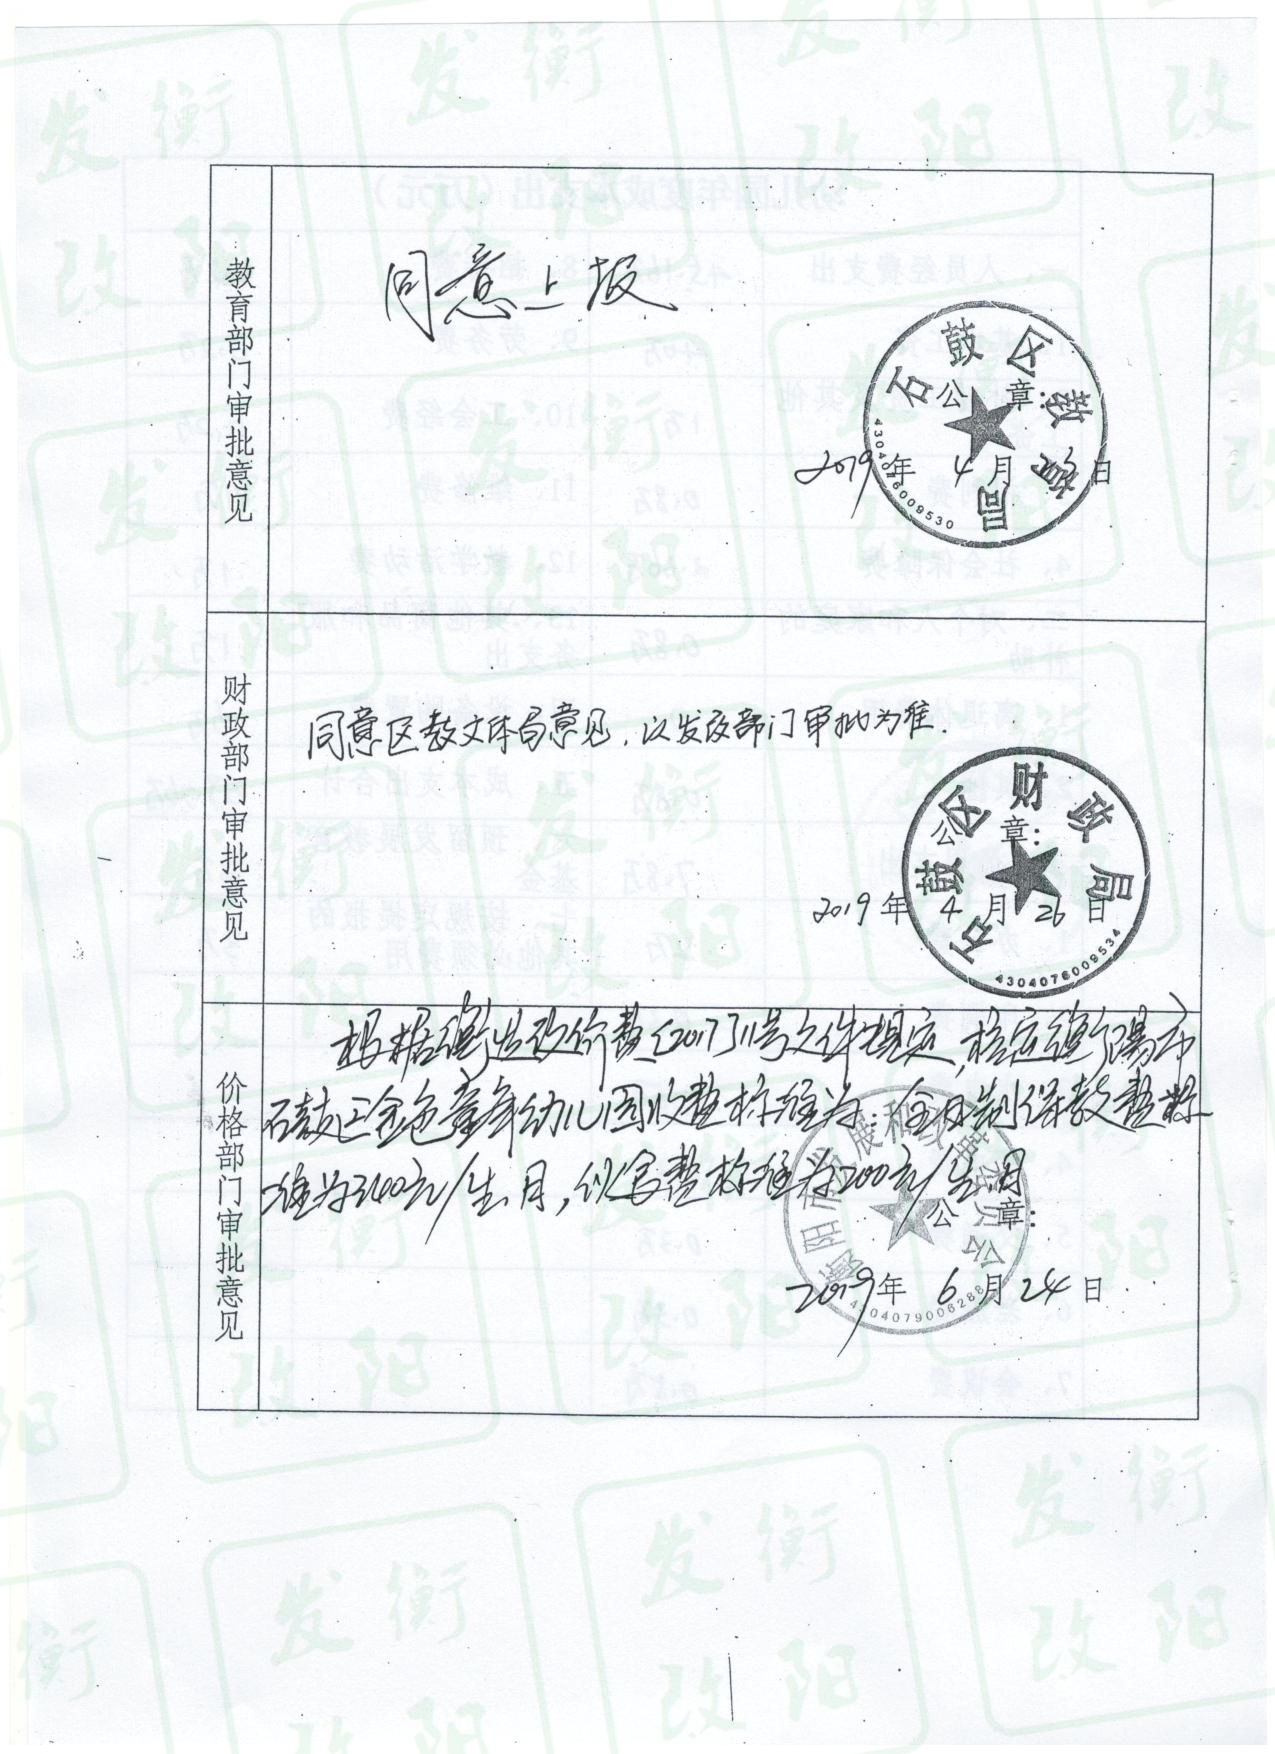 教育部门审批意见
同意上报
石鼓区教育局
公 章:
4304076009530
2019年 4月 日
财政部门审批意见
同意区教文体局意见，以发改部门审批为准.
石鼓区财政局
公 章:
4304076009534
2019年 4月 26日
价格部门审批意见
根据衡发改价费〔2017〕1号文件规定，核定衡阳市
石鼓区金色童年幼儿园收费标准为：全日制保教费标
准为340元/生.月，伙食费标准为200元/生.月
衡阳市发展和改革委员会
公 章:
2019年 6月 24日
衡阳
发改